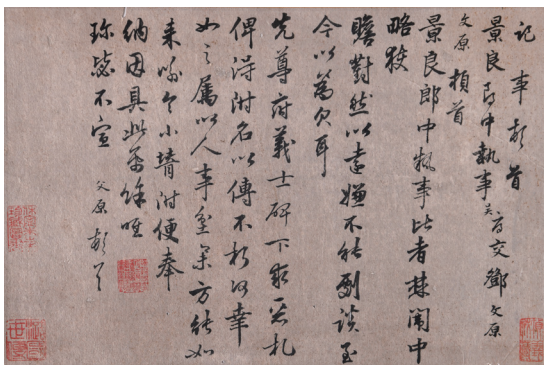 記事頓首
景良郎中執事 交鄧文原
文原頓首
景良郎中執事比者棘闈中
略獲
瞻對然以遠嫌不能劇談至
今以為欠耳
先尊府義士碑下取惡札
俾得附名以傳不朽何幸
如之屬以人事坌集方能如
來喻今小壻附便奉
納因具此餘唯
珍毖不宣 文原頓首